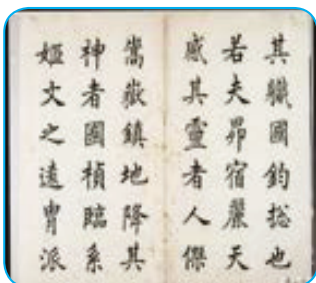 其職國鈞捴也
若夫昴宿麗天
感其靈者人傑
嵩嶽鎮地降其
神者國楨臨系
姬文之遠冑派